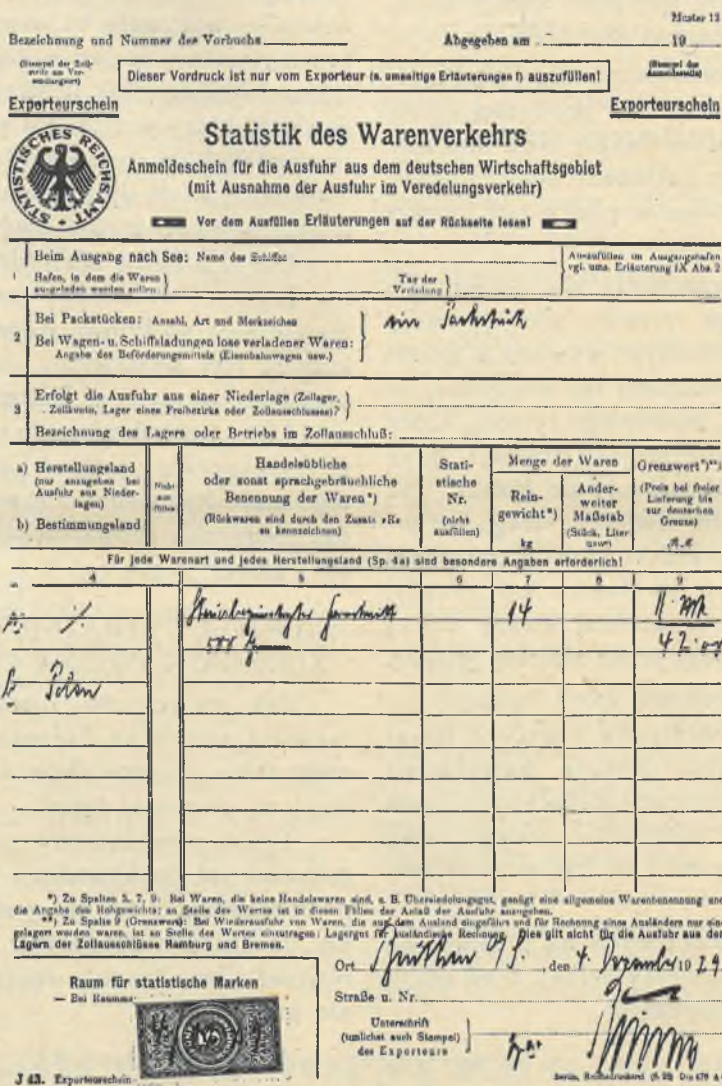 Muster 12
Bezeichnung und Nummer des Vorbuchs Abgegeben am 19
Dieser Vordruck ist nur vom Exporteur (s. umseitige Erläuterungen I) auszufüllen!
Exporteurschein Exporteurschein
STATISTISCHES REICHSAMT
Statistik des Warenverkehrs
Anmeldeschein für die Ausfuhr aus dem deutschen Wirtschaftsgebiet
(mit Ausnahme der Ausfuhr im Veredelungsverkehr)
Vor dem Ausfüllen Erläuterungen auf der Rückseite lesen!
1 Beim Ausgang nach See: Name des Schiffes
Hafen, in dem die Waren ausgeladen werden sollen: Tag der Verladung
Auszufüllen im Ausgangshafen vgl. ums. Erläuterung IX Abs. 2
2 Bei Packstücken: Anzahl, Art und Merkzeichen ein Packstück
Bei Wagen- u. Schiffsladungen lose verladener Waren:
Angabe des Beförderungsmittels (Eisenbahnwagen usw.)
3 Erfolgt die Ausfuhr aus einer Niederlage (Zollager,
Zollkonto, Lager eines Freibezirks oder Zollausschlusses)?
Bezeichnung des Lagers oder Betriebs im Zollausschluß:
a) Herstellungsland
(nur anzugeben bei Ausfuhr aus Niederlagen)
b) Bestimmungsland
Nicht ausfüllen
Handelsübliche
oder sonst sprachgebräuchliche
Benennung der Waren*)
(Rückwaren sind durch den Zusatz »R« zu kennzeichnen)
Statistische
Nr.
(nicht ausfüllen)
Menge der Waren
Reingewicht*)
kg
Anderweiter
Maßstab
(Stück, Liter usw.)
Grenzwert*)**)
(Preis bei freier Lieferung bis zur deutschen Grenze)
Für jede Warenart und jedes Herstellungsland (Sp. 4a) sind besondere Angaben erforderlich!
4 5 6 7 8 9
14
b Polen
*) Zu Spalten 5, 7, 9: Bei Waren, die keine Handelswaren sind, z. B. Übersiedelungsgut, genügt eine allgemeine Warenbenennung und
die Angabe des Rohgewichts; an Stelle des Wertes ist in diesen Fällen der Anlaß der Ausfuhr anzugeben.
**) Zu Spalte 9 (Grenzwert): Bei Wiederausfuhr von Waren, die aus dem Ausland eingeführt und für Rechnung eines Ausländers nur eingelagert worden waren, ist an Stelle des Wertes einzutragen: Lagergut für ausländische Rechnung. Dies gilt nicht für die Ausfuhr aus den
Lägern der Zollausschlüsse Hamburg und Bremen.
Raum für statistische Marken
— Bei Raumma
Ort Beuthen O/S. , den 4. Dezember 19 29
Straße u. Nr.
Unterschrift
(tunlichst auch Stempel)
des Exporteurs
J 43. Exporteurschein